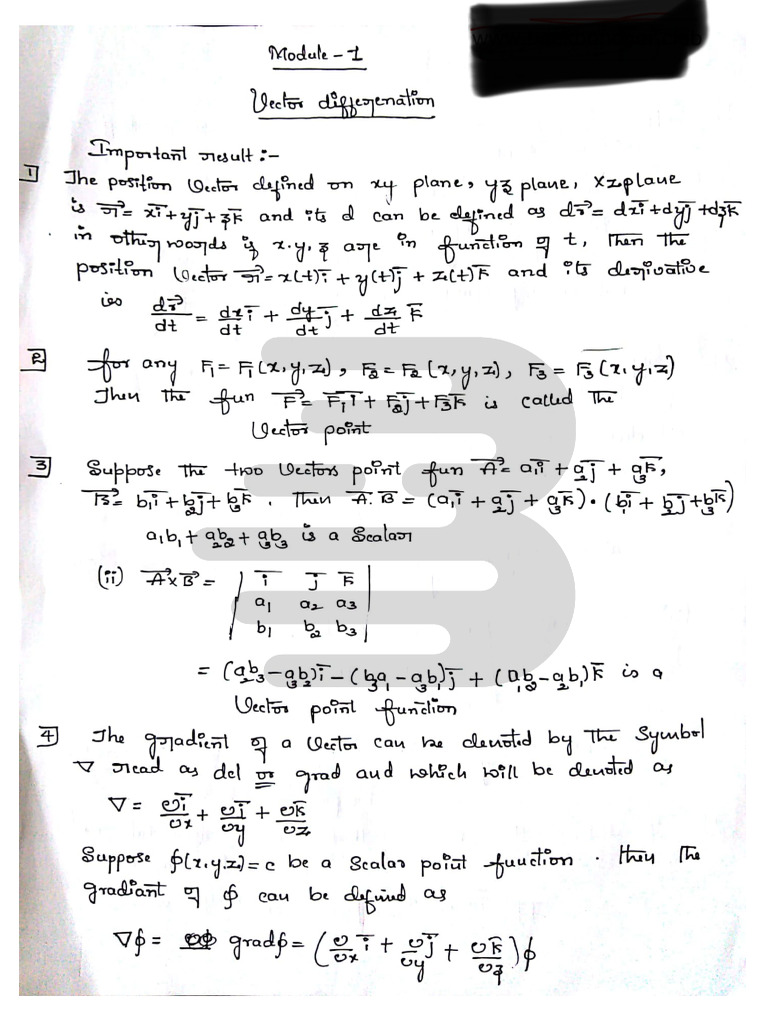 Module - 1
Vector differenation
Important result :-
1 The position Vector defined on xy plane, yz plane, xz plane
is r⃗ = xi̅ + yj̅ + zk̅ and its d can be defined as dr⃗ = dxi̅ + dyj̅ + dzk̅
in other words if x.y,z are in function of t, Then the
position Vector r⃗ = x(t)i̅ + y(t)j̅ + z(t)k̅ and its derivative
is dr⃗/dt = dx/dt i̅ + dy/dt j̅ + dz/dt k̅
2 for any F₁ = F₁(x,y,z), F₂ = F₂(x,y,z), F₃ = F₃(x,y,z)
Then the fun F⃗ = F₁i̅ + F₂j̅ + F₃k̅ is called the
Vector point
3 Suppose the two Vectors point fun A⃗ = a₁i̅ + a₂j̅ + a₃k̅,
B⃗ = b₁i̅ + b₂j̅ + b₃k̅. Then A⃗.B⃗ = (a₁i̅ + a₂j̅ + a₃k̅)·(b₁i̅ + b₂j̅ + b₃k̅)
a₁b₁ + a₂b₂ + a₃b₃ is a Scalar
(ii) A⃗×B⃗ = | i̅ j̅ k̅ |
a₁ a₂ a₃
b₁ b₂ b₃
= (a₂b₃ - a₃b₂)i̅ - (b₃a₁ - a₃b₁)j̅ + (a₁b₂ - a₂b₁)k̅ is a
Vector point function
4 The gradient of a Vector can be denoted by the Symbol
∇ read as del or grad and which will be denoted as
∇ = ∂i̅/∂x + ∂j̅/∂y + ∂k̅/∂z
Suppose ϕ(x,y,z) = c be a Scalar point function. then The
gradiant of ϕ can be defined as
∇ϕ = gradϕ = (∂/∂x i̅ + ∂j̅/∂y + ∂k̅/∂z)ϕ